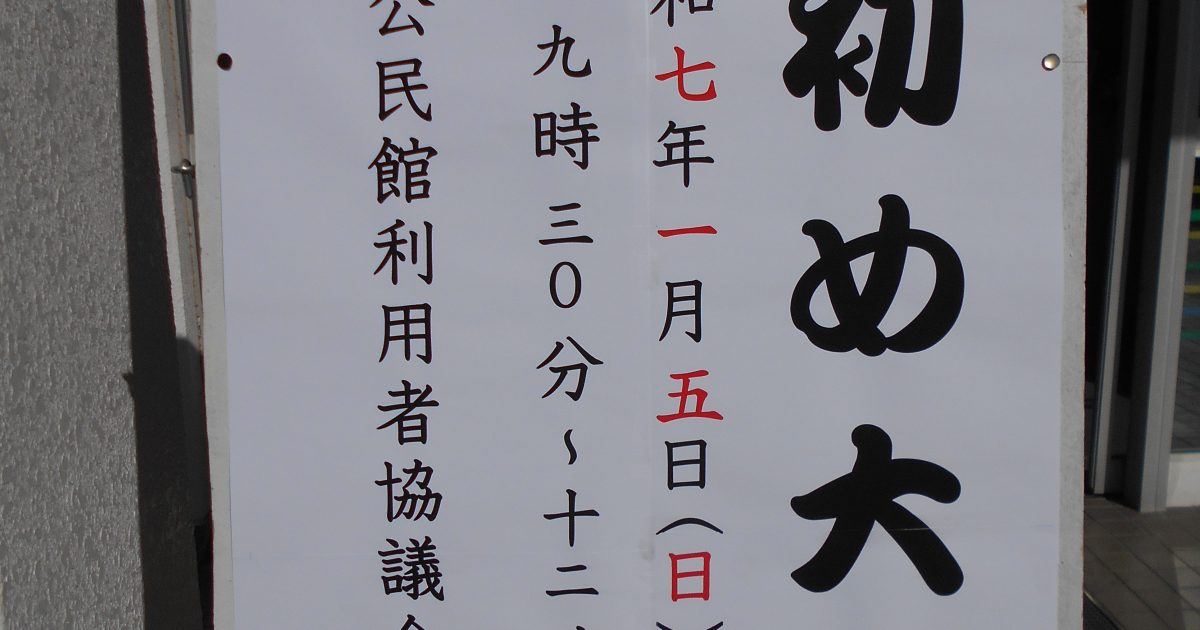 初め大
和七年一月五日(日)
九時三0分~十二
公民館利用者協議会